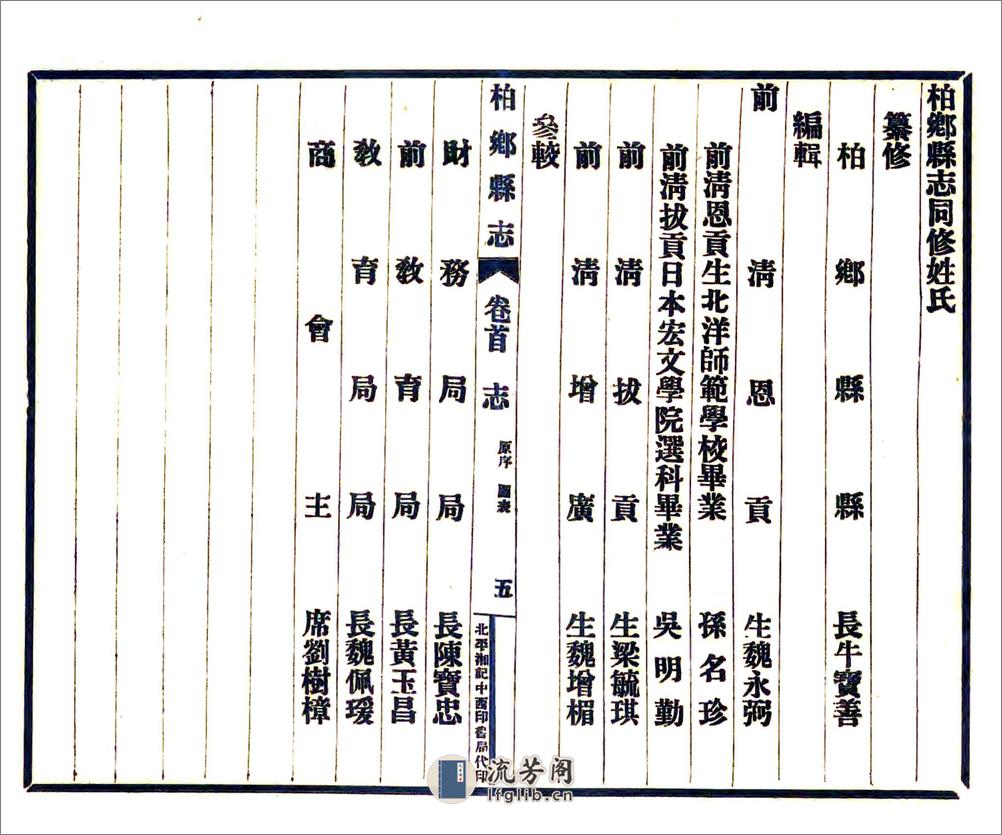 柏鄉縣志同修姓氏
纂修
柏鄉縣縣長牛寶善
編輯
前清恩貢生魏永弼
前清恩貢生北洋師範學校畢業孫名珍
前清拔貢日本宏文學院選科畢業吳明勤
前清拔貢生梁毓琪
前清增廣生魏增楣
參較
柏鄉縣志 卷首 志 原序 圖表 五 北平湘記中西印書局代印
財務局局長陳寶忠
前教育局局長黃玉昌
教育局局長魏佩瑗
商會主席劉樹樟
流芳阁
lfglib.cn